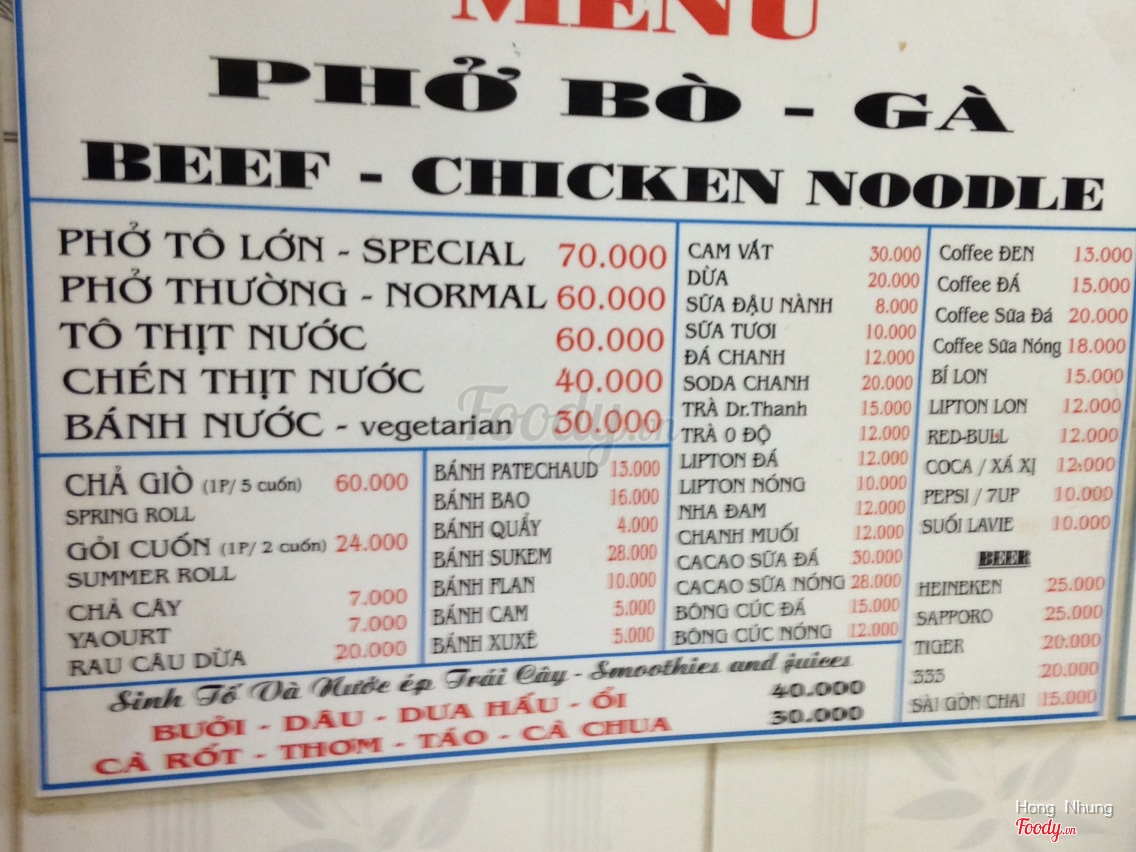 MENU
PHỞ BÒ - GÀ
BEEF - CHICKEN NOODLE
PHỞ TÔ LỚN - SPECIAL 70.000
PHỞ THƯỜNG - NORMAL 60.000
TÔ THỊT NƯỚC 60.000
CHÉN THỊT NƯỚC 40.000
BÁNH NƯỚC - vegetarian 30.000
CHẢ GIÒ (1P/ 5 cuốn) 60.000
SPRING ROLL
GỎI CUỐN (1P/ 2 cuốn) 24.000
SUMMER ROLL
CHẢ CÂY 7.000
YAOURT 7.000
RAU CÂU DỪA 20.000
BÁNH PATECHAUD 13.000
BÁNH BAO 16.000
BÁNH QUẨY 4.000
BÁNH SUKEM 28.000
BÁNH FLAN 10.000
BÁNH CAM 5.000
BÁNH XUXÊ 5.000
CAM VẮT 30.000
DỪA 20.000
SỮA ĐẬU NÀNH 8.000
SỮA TƯƠI 10.000
ĐÁ CHANH 12.000
SODA CHANH 20.000
TRÀ Dr.Thanh 15.000
TRÀ 0 ĐỘ 12.000
LIPTON ĐÁ 12.000
LIPTON NÓNG 10.000
NHA ĐAM 12.000
CHANH MUỐI 12.000
CACAO SỮA ĐÁ 30.000
CACAO SỮA NÓNG 28.000
BÔNG CÚC ĐÁ 15.000
BÔNG CÚC NÓNG 12.000
Coffee ĐEN 13.000
Coffee ĐÁ 15.000
Coffee Sữa Đá 20.000
Coffee Sữa Nóng 18.000
BÍ LON 15.000
LIPTON LON 12.000
RED-BULL 12.000
COCA / XÁ XỊ 12.000
PEPSI / 7UP 10.000
SUỐI LAVIE 10.000
BEER
HEINEKEN 25.000
SAPPORO 25.000
TIGER 20.000
333 20.000
SÀI GÒN CHAI 15.000
Sinh Tố Và Nước ép Trái Cây - Smoothies and juices
BƯỞI - DÂU - DƯA HẤU - ỔI 40.000
CÀ RỐT - THƠM - TÁO - CÀ CHUA 30.000
Foody.vn
Hong Nhung
Foody.vn